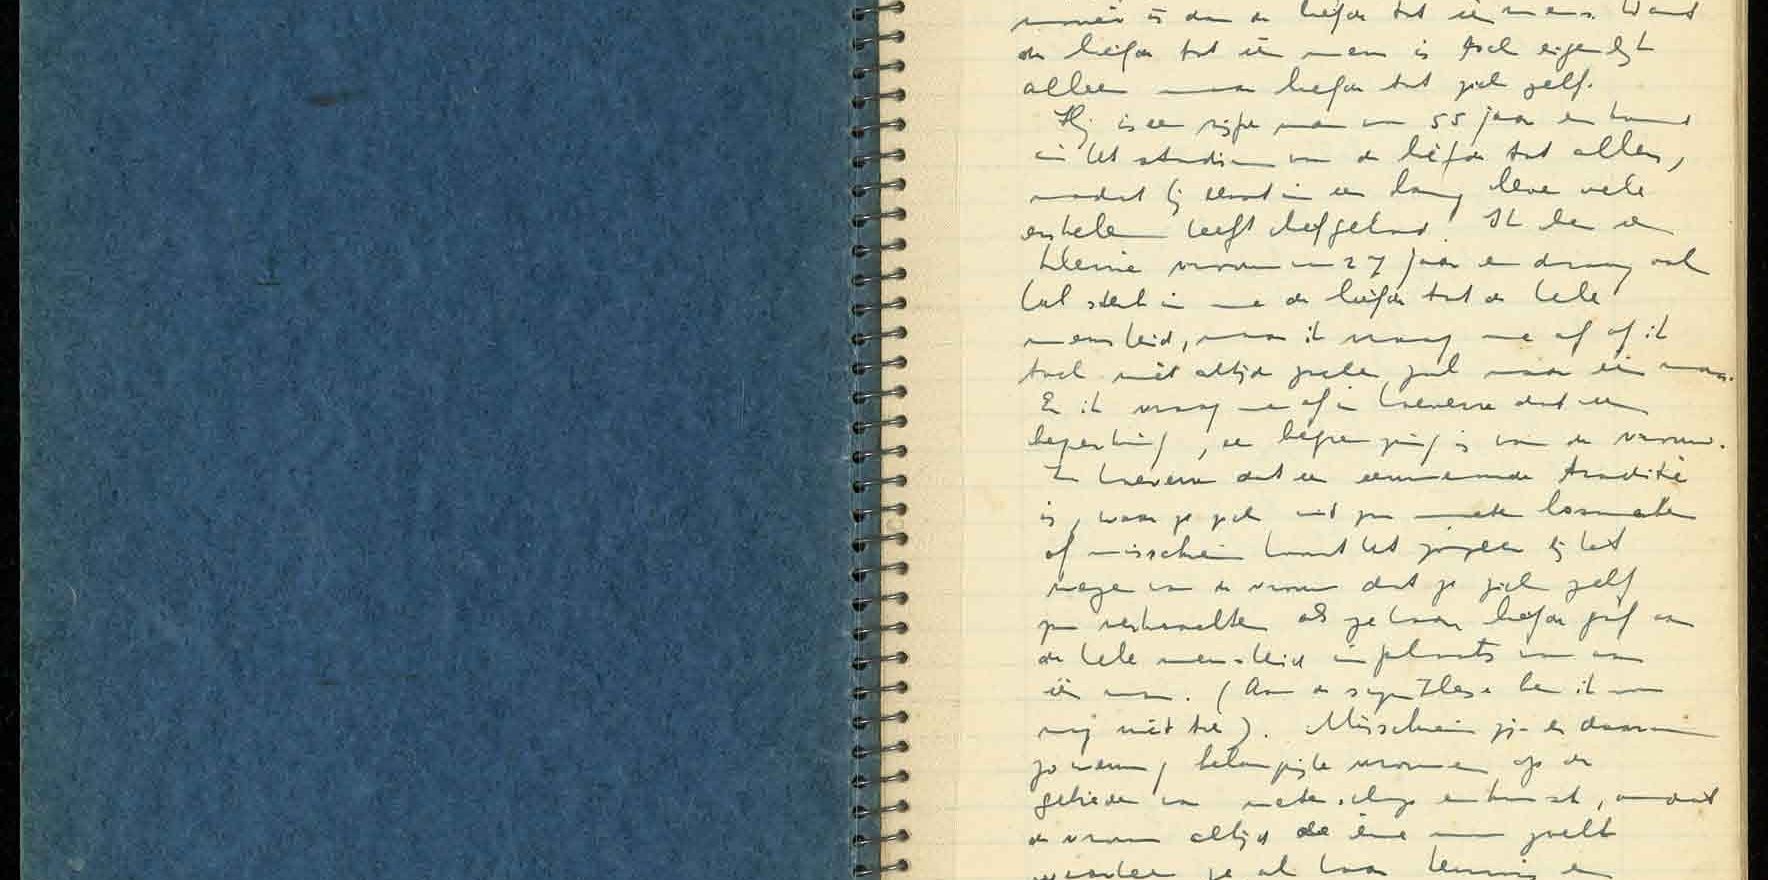 mooier is dan de liefde tot één mens. Want
de liefde tot één mens is toch eigenlijk
alleen maar liefde tot zich zelf.
Hij is een rijpe man van 55 jaar en komt
in het stadium van de liefde tot allen,
nadat hij eerst in een lang leven vele
enkelen heeft liefgehad. Ik ben een
kleine vrouw van 27 jaar en draag ook
heel sterk in me de liefde tot de hele
mensheid, maar ik vraag me af of ik
toch niet altijd zoeken zal naar één man.
En ik vraag me af in hoeverre dat een
beperking, een begrenzing is van de vrouw.
In hoeverre dat een eeuwenoude traditie
is, waar ze zich uit zou moeten losmaken
of misschien hoort het zozeer bij het
wezen van de vrouw dat ze zich zelf
zou verkrachten als ze haar liefde gaf aan
de hele mensheid in plaats van aan
één man. (Aan de synthese ben ik nog
niet toe). Misschien zijn er daarom
zo weinig belangrijke vrouwen op de
gebieden van wetenschap en kunst, omdat
de vrouw altijd de éne man zoekt
waarheen ze al haar kennis en